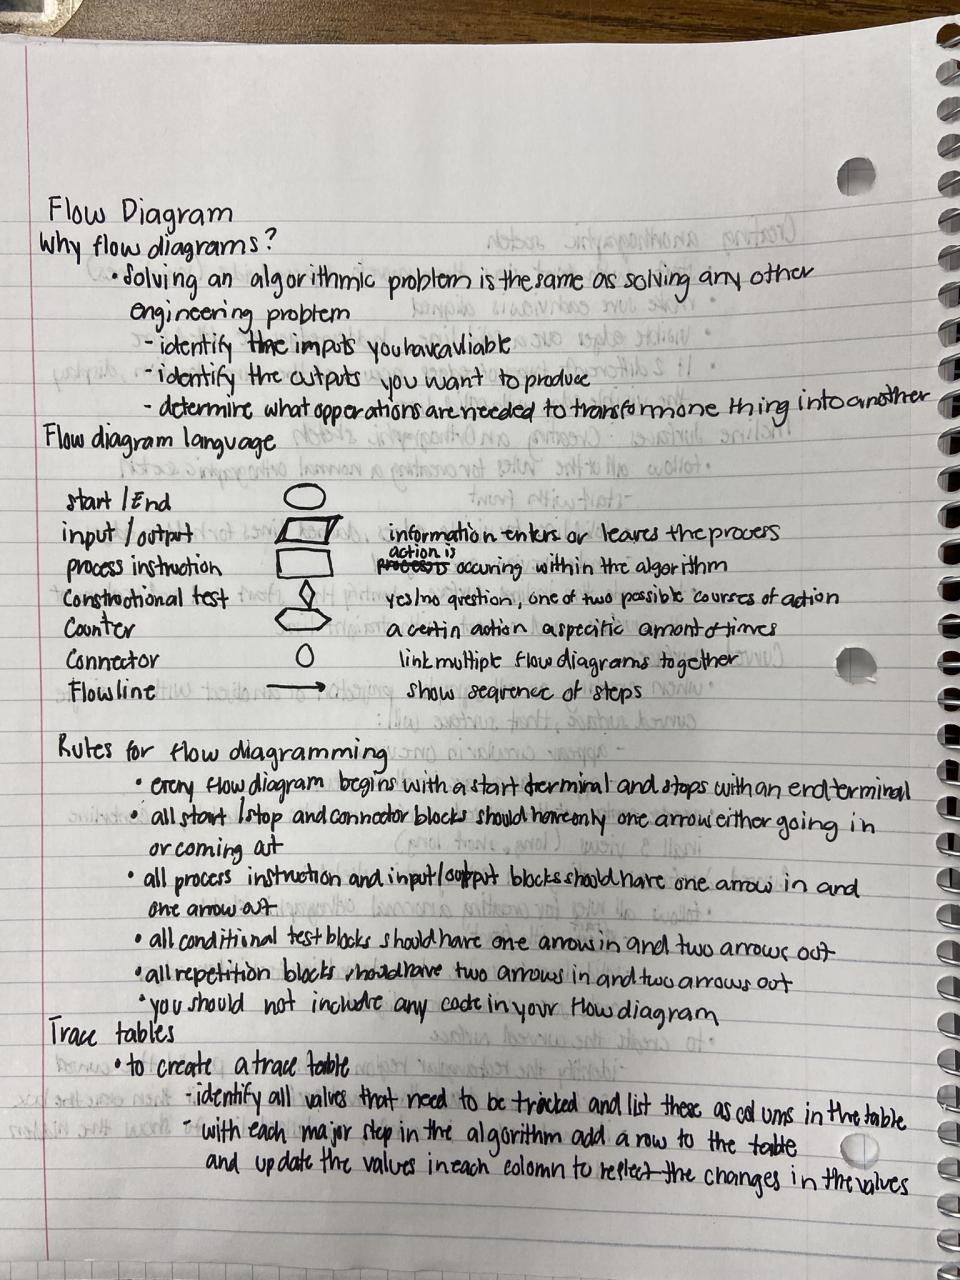 Flow Diagram
Why flow diagrams?
• Solving an algorithmic problem is the same as solving any other
engineering problem
- identify the imputs you have avliable
- identify the outputs you want to produce
- determine what opperations are needed to transform one thing into another
Flow diagram language
start / End
input / output information enters or leaves the process
process instruction action is occuring within the algorithm
Constructional test yes/no question, one of two possible courses of action
Counter a certin action a specific amont of times
Connector link multiple flow diagrams together
Flowline show seqrence of steps
Rules for flow diagramming
• every flow diagram begins with a start terminal and stops with an end terminal
• all start / stop and connector blocks should have only one arrow either going in
or coming out
• all process instruction and input/output blocks should have one arrow in and
one arrow out
• all conditional test blocks should have one arrow in and two arrows out
• all repetition blocks should have two arrows in and two arrows out
• you should not include any code in your flow diagram
Trace tables
• to create a trace table
- identify all values that need to be tracked and list these as colums in the table
- with each major step in the algorithm add a row to the table
and update the values in each colomn to reflect the changes in the values